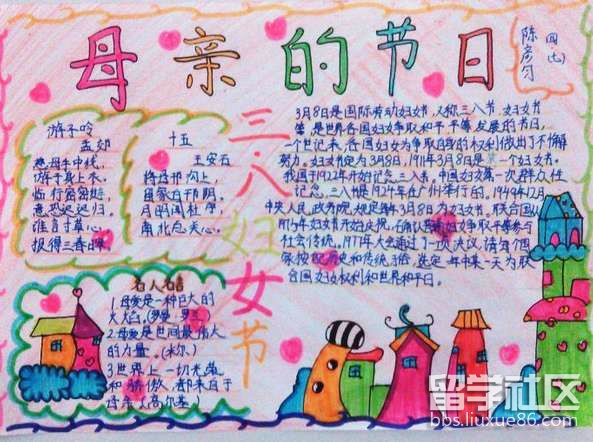 母亲的节日
陈彦匀
四(七)
三·八妇女节
游子吟
孟郊
慈母手中线，
游子身上衣。
临行密密缝，
意恐迟迟归。
谁言寸草心，
报得三春晖。
十五
王安石
将母邗沟上，
留家白邗阴。
月明闻杜宇，
南北总关心。
3月8日是国际劳动妇女节，又称三八节，妇女节
等，是世界各国妇女争取和平、平等、发展的节日。
一个世纪来，各国妇女为争取自身的权利做出了不懈
努力。妇女节定为3月8日，1911年3月8日是第一个妇女节。
我国于1922年开始记念三八。中国妇女第一次群众性
记念，三八是1924年在广州举行的。1949年12月
中央人民政务院规定
3月8日为妇女节。联合国从
1975年妇女节开始庆祝，
妇女争取平等参与
社会传统。1977年大会通过了一项决议，请每个国
家按
历史和传统习俗，选定一年中某一天为联
合国妇女权利和世界和平日。
名人名言
1.母爱是一种巨大的
火焰。(罗曼·罗兰)
2.母爱是世间最伟大
的力量。(米尔)
3.世界上一切光荣
和骄傲，都来自于
母亲。(高尔基)
留学社区
bbs.liuxue86.com